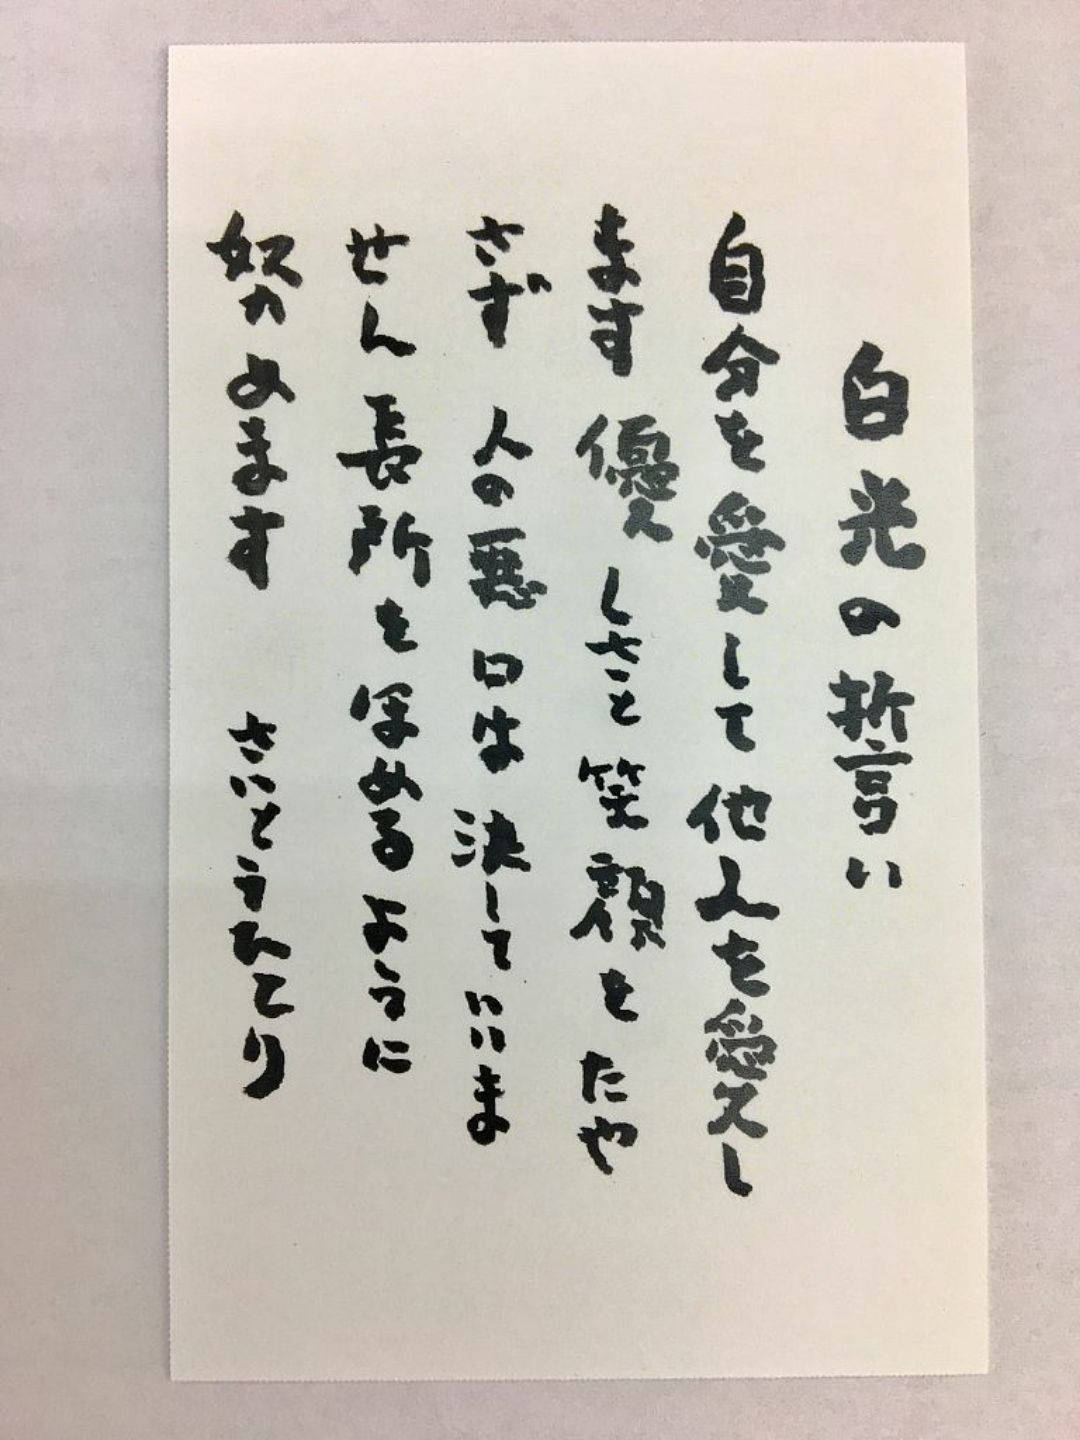 白光の誓い
自分を愛して他人を愛し
ます 優しさと笑顔をたや
さず 人の悪口は決していいま
せん 長所を誉めるように
努めます さいとうひとり